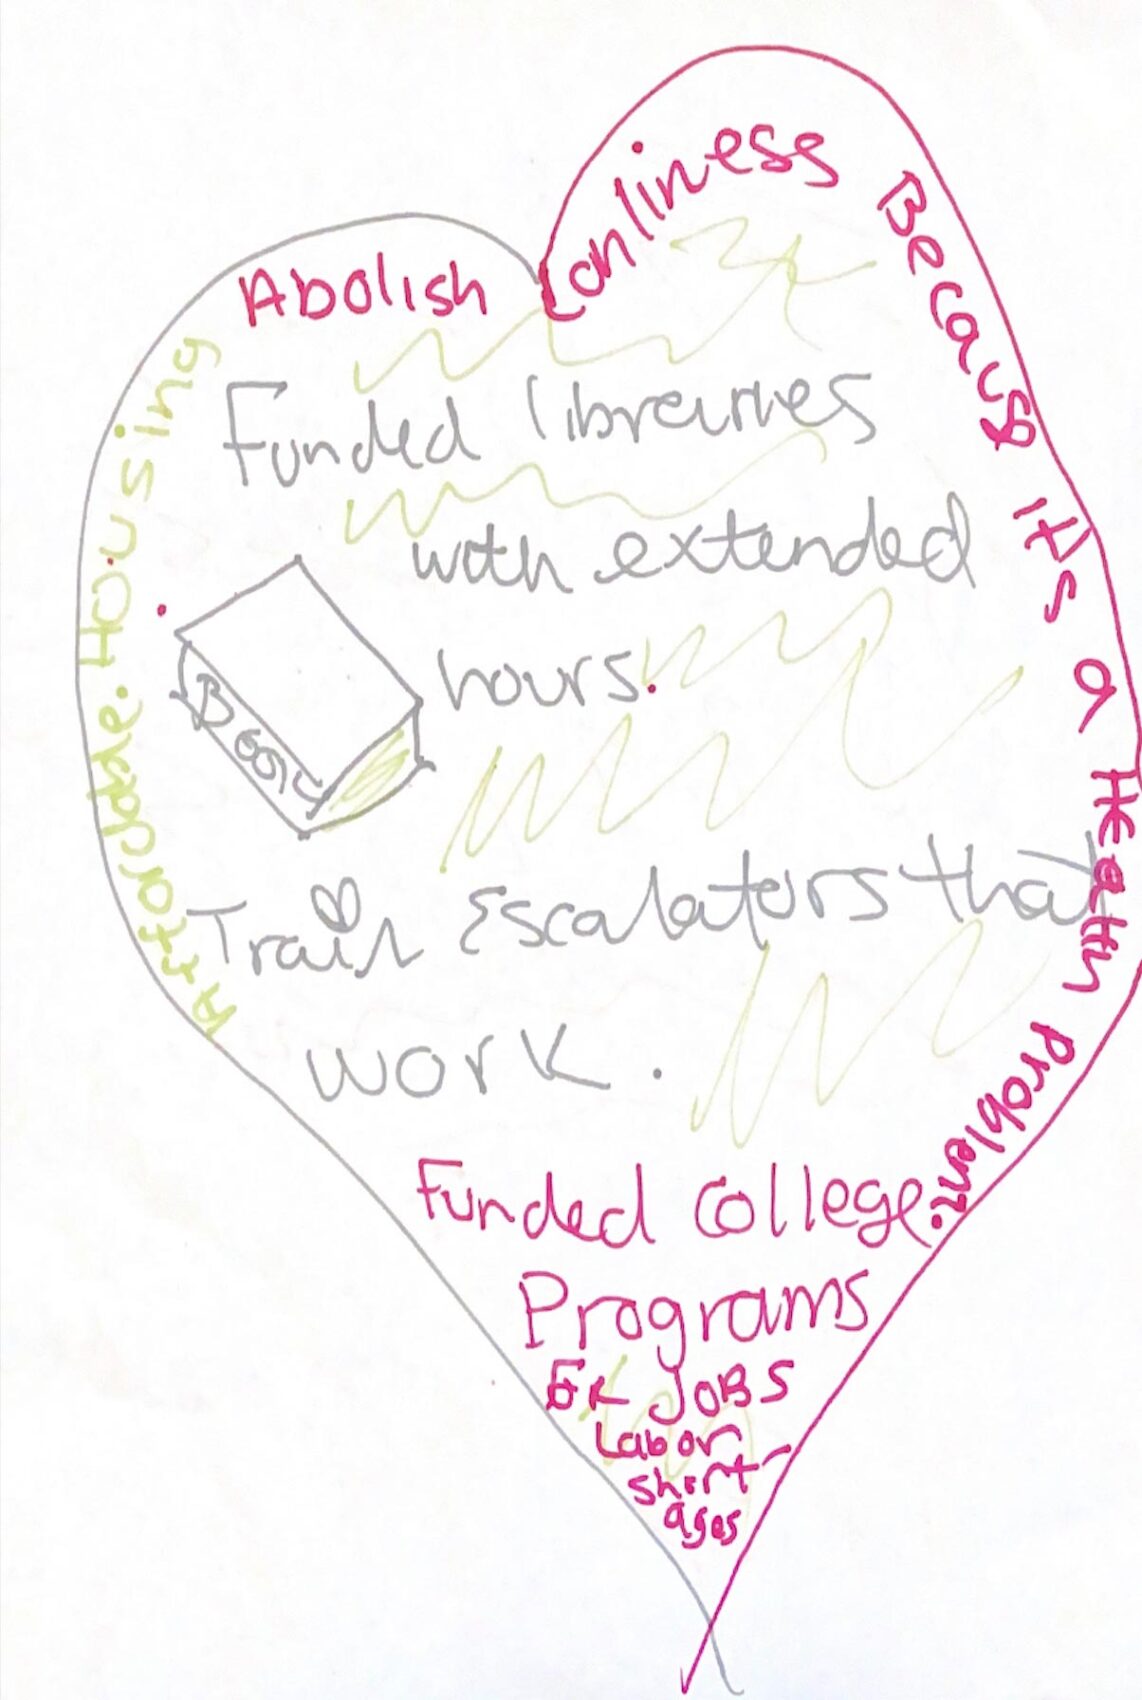 Abolish Lonliness Because It's a Health Problem.
Affordable Housing
Funded libraries
with extended
hours.
Book
Train Escalators that
work.
Funded College
Programs
for JOBS
Labor
short-
ages